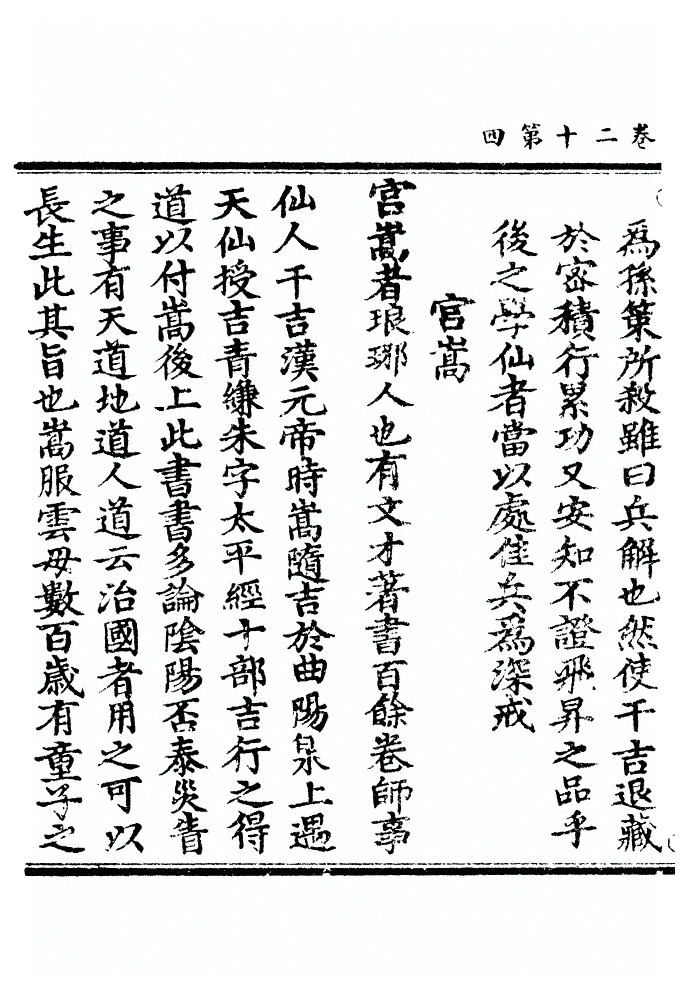 卷二十第四
爲孫策所殺雖曰兵解也然使干吉退藏
於密積行累功又安知不證飛昇之品乎
後之學仙者當以處佳兵爲深戒
宮嵩
宮嵩者琅琊人也有文才著書百餘卷師事
仙人干吉漢元帝時嵩隨吉於曲陽泉上遇
天仙授吉青縑朱字太平經十部吉行之得
道以付嵩後上此書書多論陰陽否泰災眚
之事有天道地道人道云治國者用之可以
長生此其旨也嵩服雲母數百歲有童子之